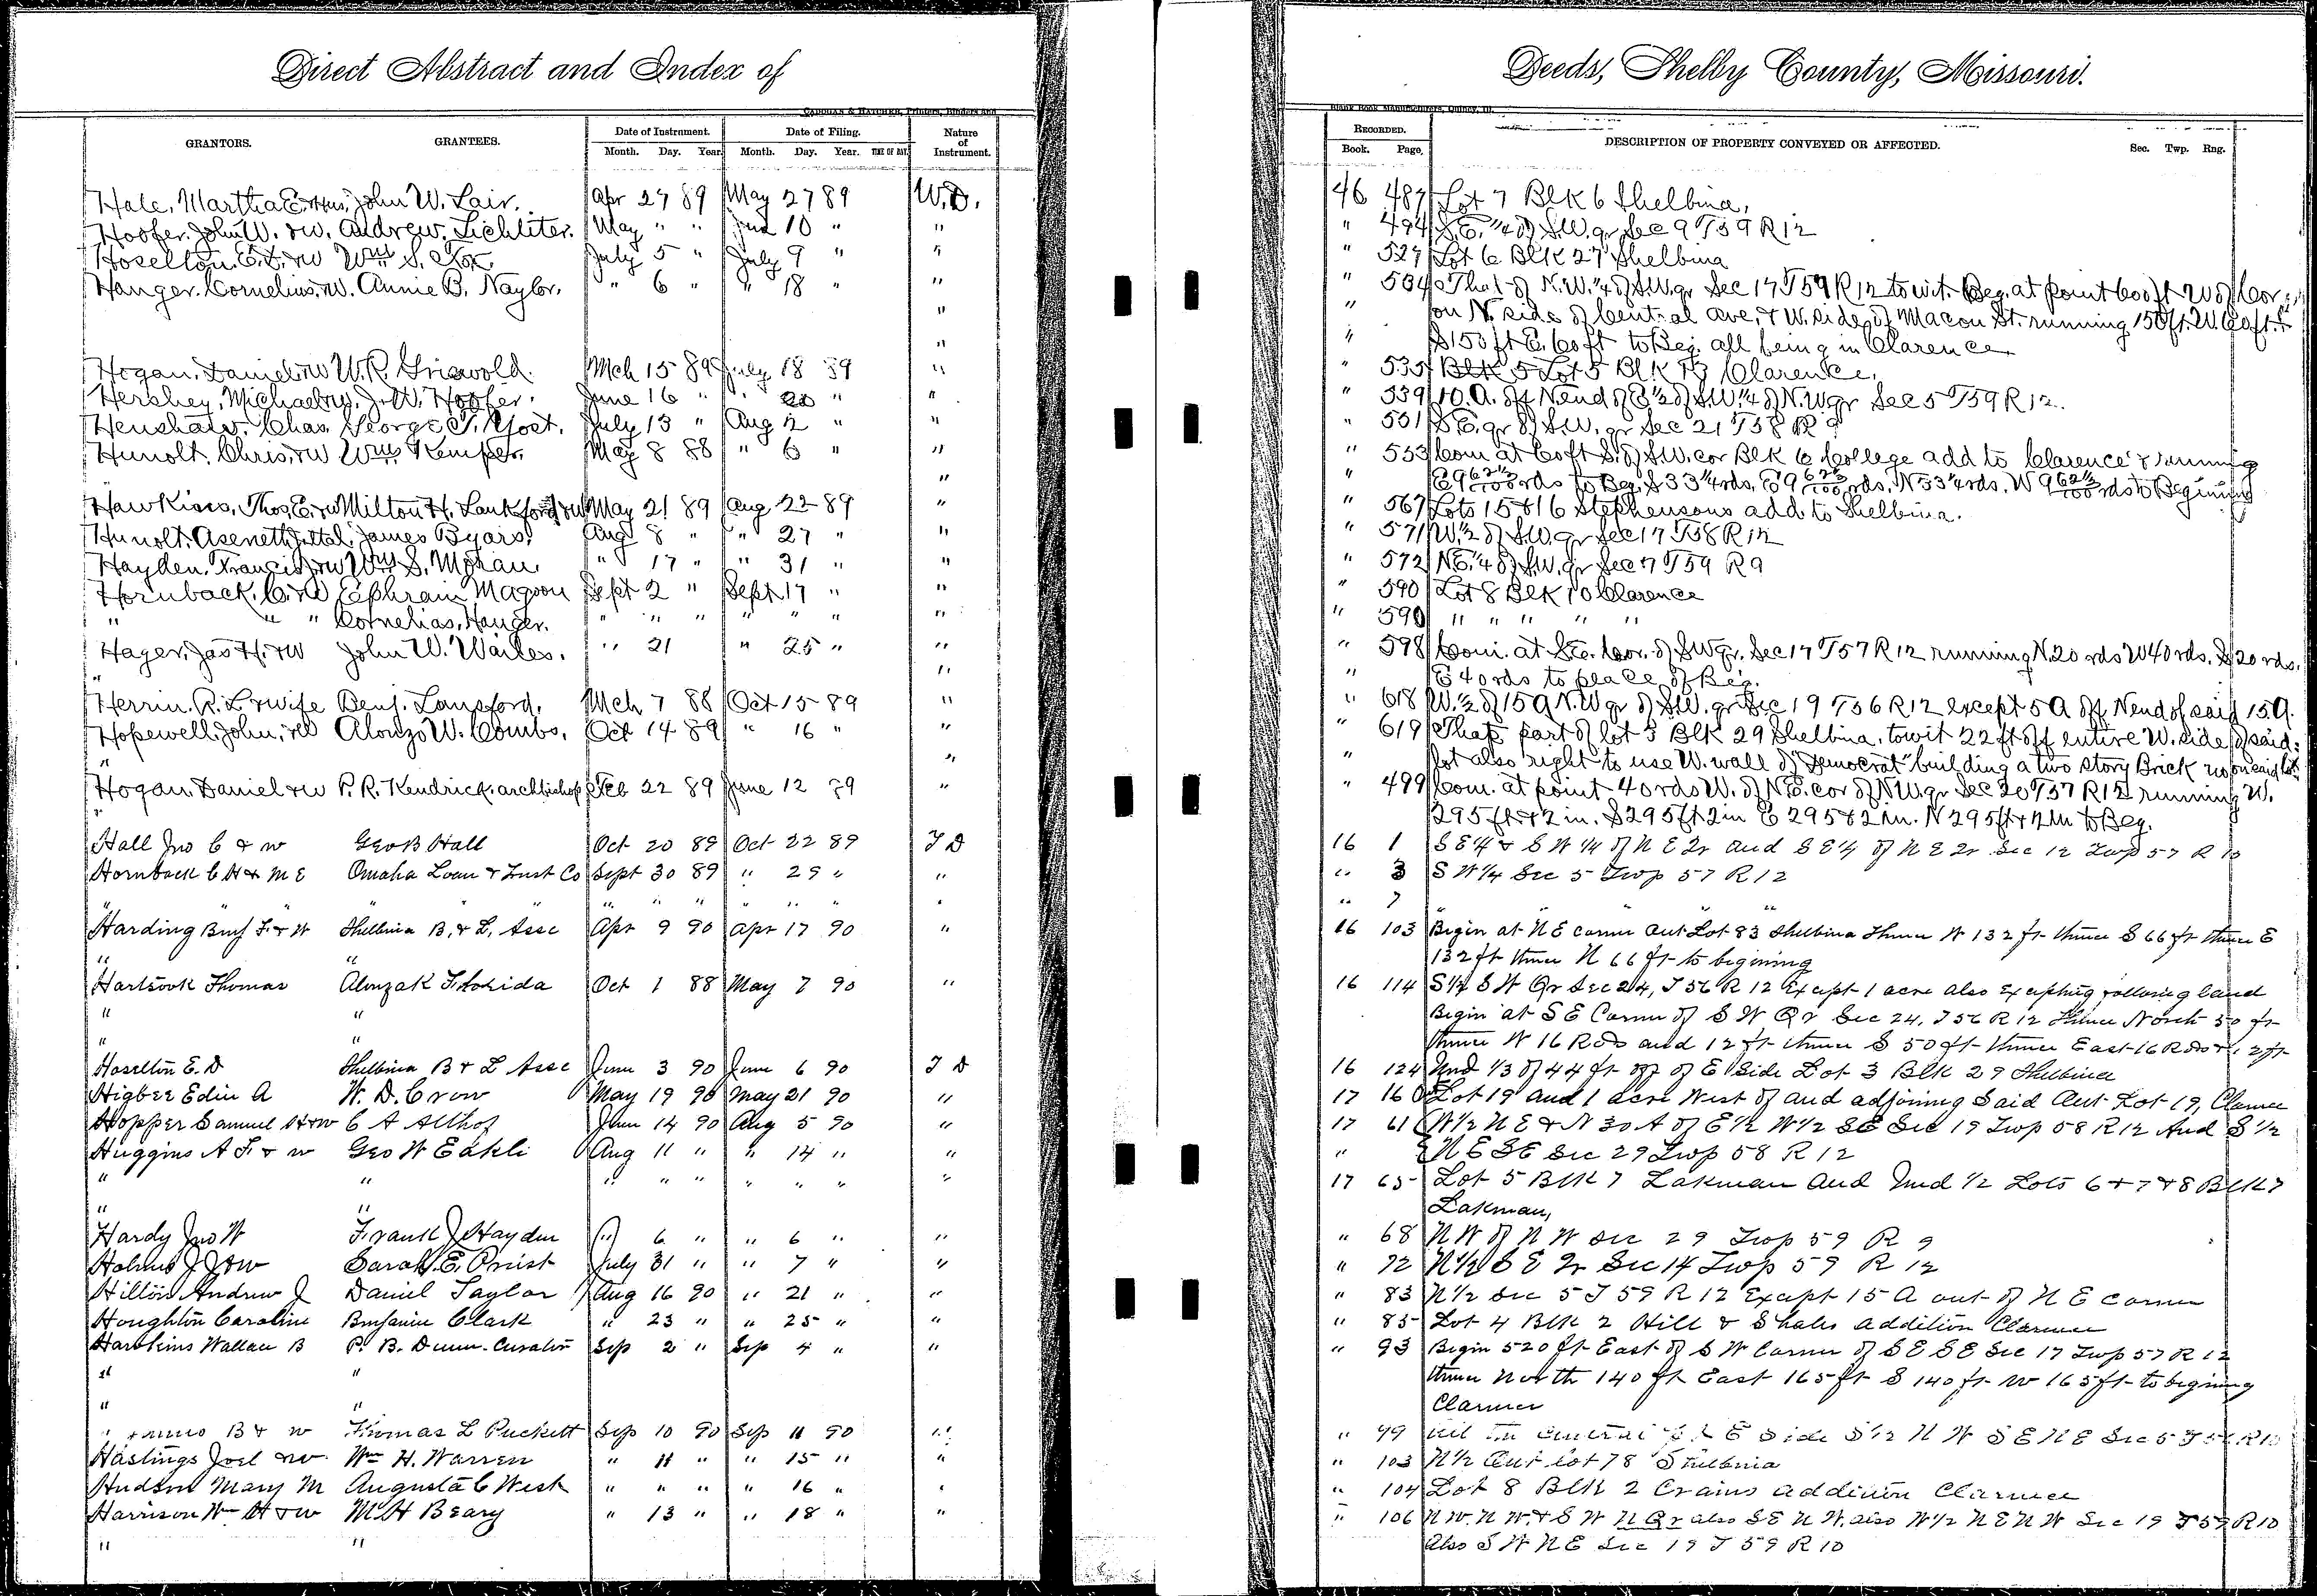 Direct Abstract and Index of
Deeds, Shelby County, Missouri.
CADOGAN & HATCHER, Printers, Binders and
Blank Book Manufacturers, Quincy, Ill.
GRANTORS. GRANTEES. Date of Instrument. Month. Day. Year. Date of Filing. Month. Day. Year. TIME OF DAY. Nature of Instrument.
RECORDED. Book. Page. DESCRIPTION OF PROPERTY CONVEYED OR AFFECTED. Sec. Twp. Rng.
Hale, Martha E. & Hus, John W. Lair. Apr 27 89 May 27 89 W.D. 46 487 Lot 7 Blk 6 Shelbina,
Hoofer. John W. & w. Andrew. Lichliter. May " " Jun 10 " " " 494 S.E. 1/4 of S.W. qr Sec 9 T59 R12
Hoselton. E.D. & w Wm S. Fox. July 5 " July 9 " " " 527 Lot 6 Blk 27 Shelbina
Hanger. Cornelius. W. Annie B. Naylor. " 6 " " 18 " " " 534 That of N.W. 1/4 of S.W. qr Sec 17 T59 R12 to wit. Beg. at point 600 ft W of Cor
" " on N. side of Central ave. & W. side of Macon St. running 150 ft. W. 60 ft.
" " S 150 ft E. 60 ft to Beg. all being in Clarence
Hogan. Daniel & w W.R. Griswold. Mch 15 89 July 18 89 " " 535 Lot 5 Blk Clarence,
Hershey, Michael & w. J.W. Hoofer. June 16 " " 20 " " " 539 10. A. off N. end of E 1/2 of S.W. 1/4 of N.W qr Sec 5 T59 R12.
Henshaw. Chas. George T. Yost. July 13 " Aug 2 " " " 551 S.E. qr of S.W. qr Sec 21 T58 R9
Hunolt. Chris. & w Wm Kemper. May 8 88 " 6 " " " 553 Com at 60 ft S. of S.W. cor Blk 6 College add to Clarence & running
" " E 9 62½/100 rds to Beg. S 33 1/4 rds. E 9 62½/100 rds. N 33 1/4 rds. W 9 62½/100 rds to Begining
Hawkins, Thos. E. & w Milton H. Lankford & w May 21 89 Aug 22 89 " " 567 Lots 15 & 16 Stephensons add to Shelbina.
Hunolt. Aseneth J. et al. James Byars. Aug 8 " " 27 " " " 571 W. 1/2 of S.W. qr Sec 17 T58 R12
Hayden. Francis & w Wm S. Moran " 17 " " 31 " " " 572 N.E. 1/4 of S.W. qr Sec 7 T59 R9
Hornback. C. & w Ephraim Magoon Sept 2 " Sept 17 " " " 590 Lot 8 Blk 10 Clarence
" " " Cornelias. Hanger. " " " " " " " " 590 " " " " "
Hager, Jas H. & w John W. Wailes. " 21 " 25 " " " 598 Com. at S.E. Cor. of SW qr. Sec 17 T57 R12 running N. 20 rds W 40 rds. S 20 rds.
" " " E 40 rds to place of Beg.
Herrin. R.L. & wife Benj. Lansford. Mch 7 88 Oct 15 89 " " 618 W. 1/2 of 15 A N.W qr of S.W. qr Sec 19 T56 R12 except 5 A off N end of said 15 A.
Hopewell. John, & w Alonzo W. Combs. Oct 14 89 " 16 " " " 619 That part of lot 3 Blk 29 Shelbina, to wit 22 ft off entire W. side of said
" " " lot also right to use W. wall of "Democrat" building a two story Brick now on said lot
Hogan. Daniel & w P.R. Kendrick. archbishop Feb 22 89 June 12 89 " " 499 Com. at point 40 rds W. of N.E. cor of N.W. qr Sec 20 T57 R12 running W.
" 295 ft & 2 in. S 295 ft 2 in E 295 & 2 in. N 295 ft & 2 in to Beg.
Hall Jno C & w Geo B Hall Oct 20 89 Oct 22 89 T D 16 1 S E 1/4 & S W 1/4 of N E Qr and S E 1/4 of N E Qr Sec 12 Twp 57 R 10
Hornback C H & M E Omaha Loan & Trust Co Sept 30 89 " 29 " " " 3 S W 1/4 Sec 5 Twp 57 R 12
" " " " " " " " " " 7 " " "
Harding Benj F. & W Shelbina B. & L. Assc Apr 9 90 Apr 17 90 " 16 103 Begin at N E corner Out Lot 83 Shelbina Thence W 132 ft thence S 66 ft thence E
" " 132 ft thence N 66 ft to begining
Hartsook Thomas Oct 1 88 May 7 90 " 16 114 S 1/2 S W Qr Sec 24, T 56 R 12 Except 1 acre also Excepting following land
" " Begin at S E Corner of S W Qr Sec 24, T 56 R 12 Thence North 50 ft
" " thence W 16 Rods and 12 ft thence S 50 ft thence East 16 Rods & 12 ft
Hoselton E. D Shelbina B & L Assc June 3 90 June 6 90 T D 16 124 Und 1/3 of 44 ft off of E Side Lot 3 Blk 29 Shelbina
Higbee Edin A W. D. Crow May 19 90 May 21 90 " 17 160 Lot 19 and 1 acre West of and adjoining Said Out Lot 19, Clarence
Hopper Samuel H & w C A Althof June 14 90 Aug 5 90 " 17 61 W 1/2 N E & N 30 A of E 1/2 W 1/2 SE Sec 19 Twp 58 R 12 And S 1/2
Huggins A F. & w Geo W Eakli Aug 11 " " 14 " " " N E SE Sec 29 Twp 58 R 12
" " " " " " " " " 17 65 Lot 5 Blk 7 Lakman and Und 1/2 Lots 6 & 7 & 8 Blk 7
" " Lakman,
Hardy Jno W Frank J Hayden " 6 " " 6 " " " 68 N W of N W Sec 29 Twp 59 R 9
Holmes J J & w Sarah E. Priest July 31 " " 7 " " " 72 N 1/2 S E Qr Sec 14 Twp 59 R 12
Hilton Andrew J Daniel Taylor Aug 16 90 " 21 " " " 83 N 1/2 Sec 5 T 59 R 12 Except 15 A out of N E corner
Houghton Caroline Benjamin Clark " 23 " " 25 " " " 85 Lot 4 Blk 2 Hill & Shales addition Clarence
Hawkins Wallace B P. B. Dunn. Curator Sep 2 " Sep 4 " " " 93 Begin 520 ft East of S W Corner of S E S E Sec 17 Twp 57 R 12
" " thence North 140 ft East 165 ft S 140 ft W 165 ft to begining
" " Clarence
" B & w Thomas L Puckett Sep 10 90 Sep 11 90 " " 99 E Side S 1/2 N W S E N E Sec 5 T
Hastings Joel & w. Wm H. Warren " 11 " " 15 " " " 103 N 1/2 Out Lot 78 Shelbina
Hudson Mary M Augusta C West " " " " 16 " " " 104 Lot 8 Blk 2 Crains addition Clarence
Harrison Wm H & w M H Beary " 13 " " 18 " " " 106 N W. N W. & S W N Qr also S E N W. also W 1/2 N E N W Sec 19 T 59 R 10
" " Also S W N E Sec 19 T 59 R 10